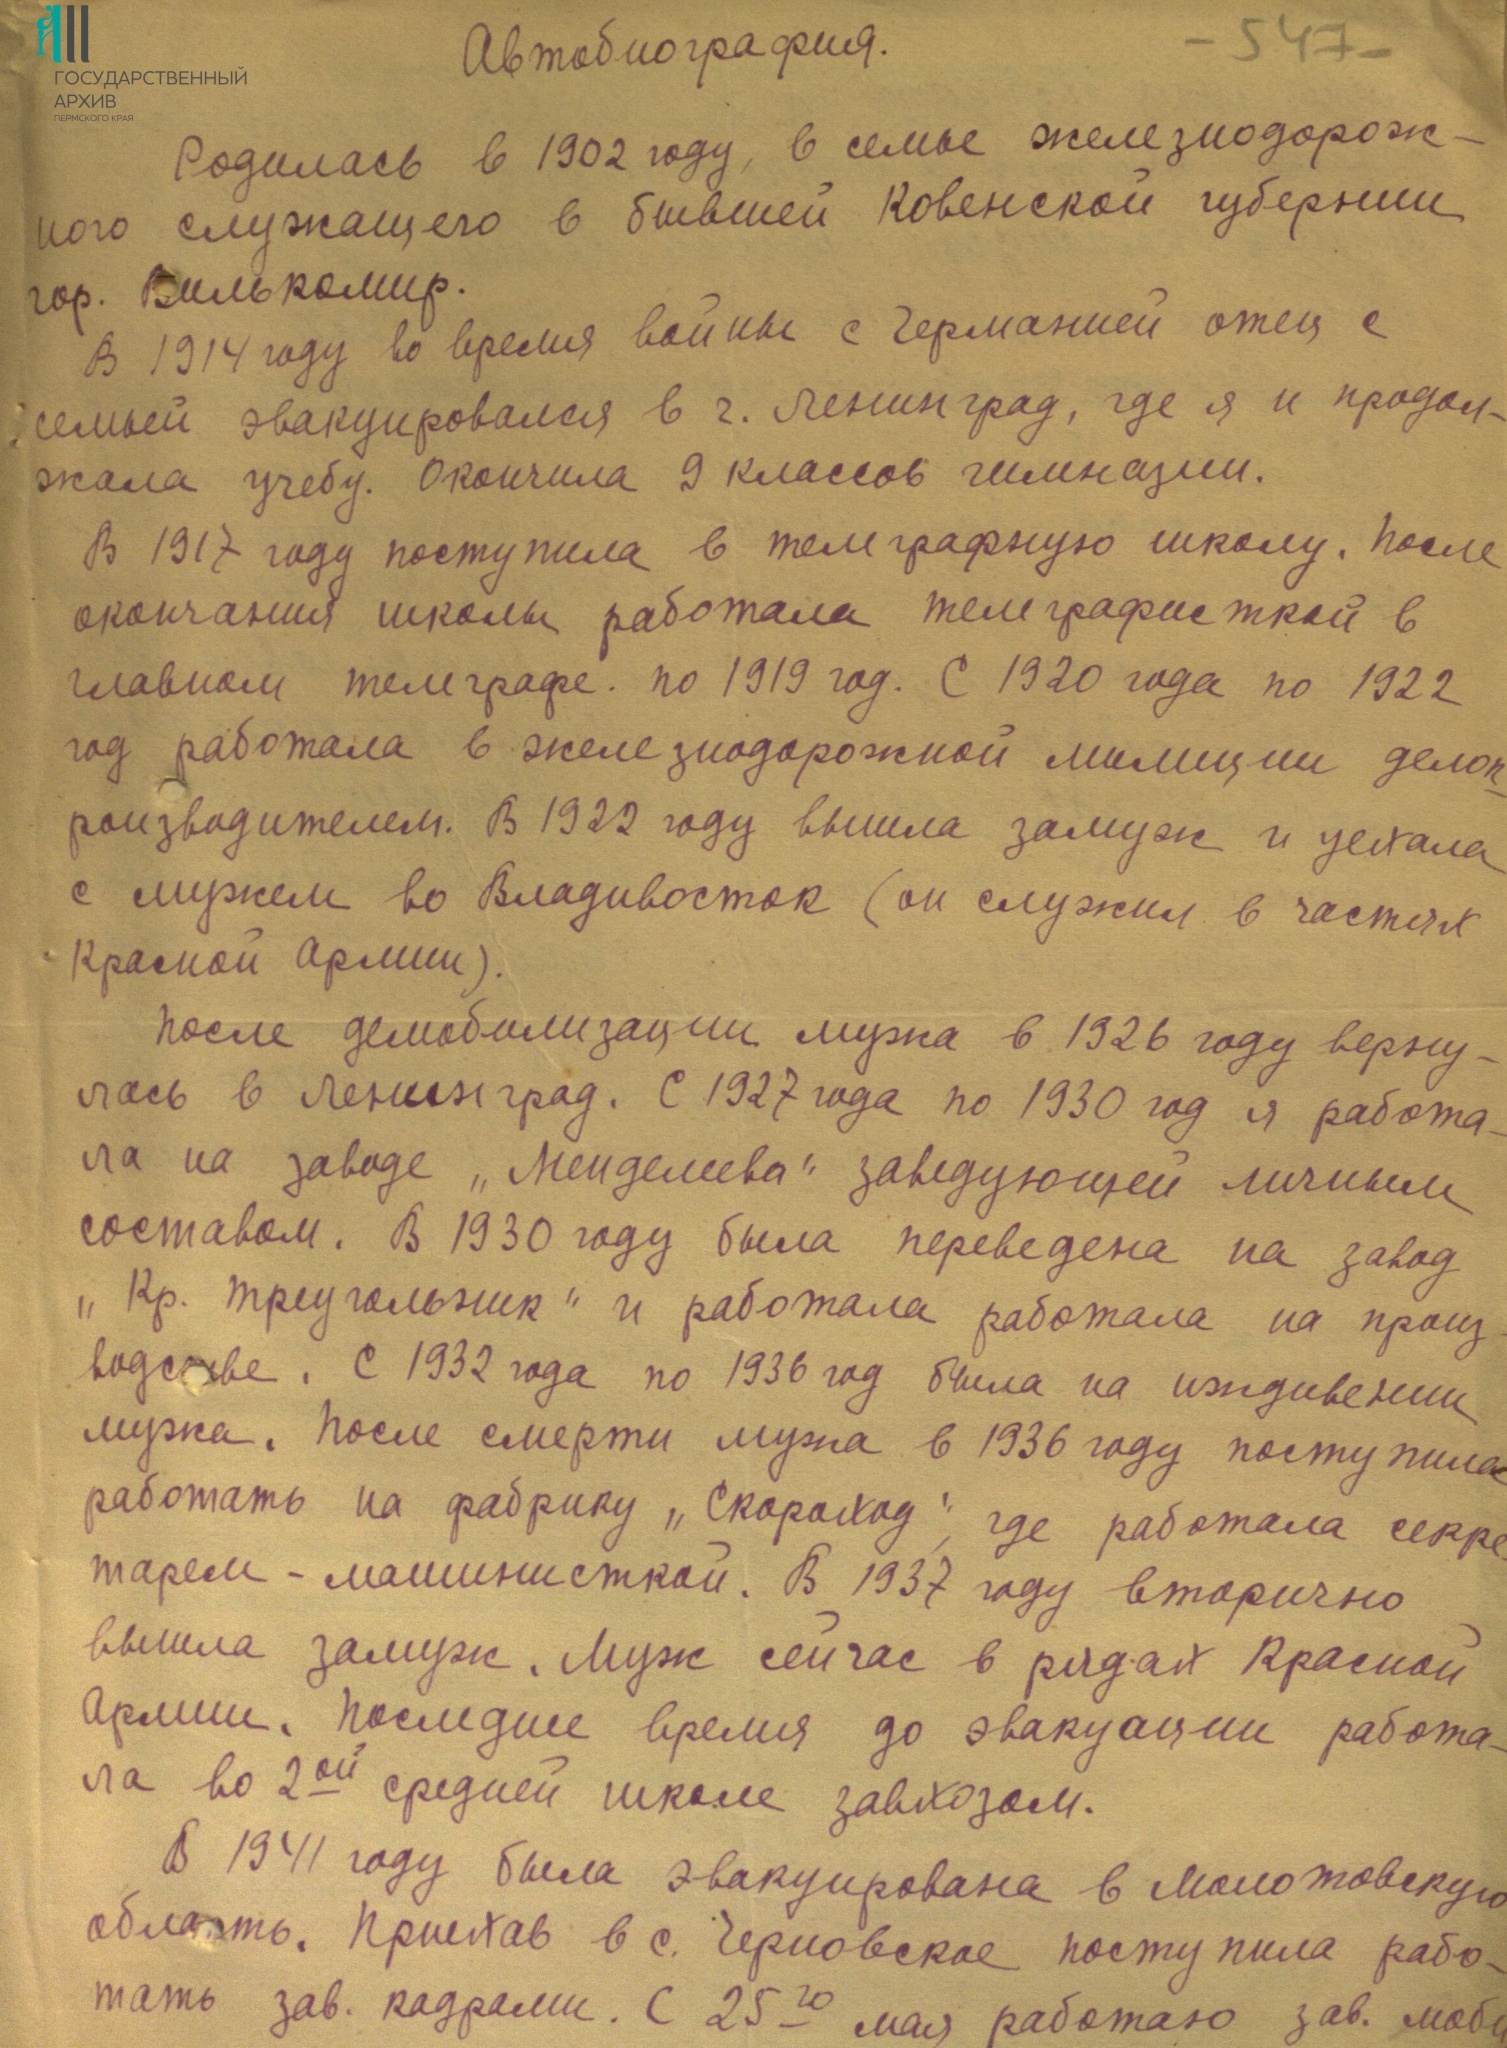 ГОСУДАРСТВЕННЫЙ
АРХИВ
ПЕРМСКОГО КРАЯ
- 547 -
Автобиография.
Родилась в 1902 году, в семье железнодорож-
ного служащего в бывшей Ковенской губернии
гор. Вилькомир.
В 1914 году во время войны с Германией отец с
семьей эвакуировался в г. Ленинград, где я и продол-
жала учебу. Окончила 9 классов гимназии.
В 1917 году поступила в телеграфную школу. После
окончания школы работала телеграфисткой в
главном телеграфе. по 1919 год. С 1920 года по 1922
год работала в железнодорожной милиции делоп-
роизводителем. В 1922 году вышла замуж и уехала
с мужем во Владивосток (он служил в частях
Красной Армии).
После демобилизации мужа в 1926 году верну-
лась в Ленинград. С 1927 года по 1930 год я работа-
ла на заводе „Менделеева" заведующей личным
составом. В 1930 году была переведена на завод
„Кр. Треугольник" и работала работала на произ-
водстве. С 1932 года по 1936 год была на иждивении
мужа. После смерти мужа в 1936 году поступила
работать на фабрику „Скороход", где работала секре-
тарем - машинисткой. В 1937 году вторично
вышла замуж. Муж сейчас в рядах Красной
Армии. Последнее время до эвакуации работа-
ла во 2ой средней школе завхозом.
В 1941 году была эвакуирована в Молотовскую
область. Приехав в с. Черновское поступила рабо-
тать зав. кадрами. С 25го мая работаю зав. моби